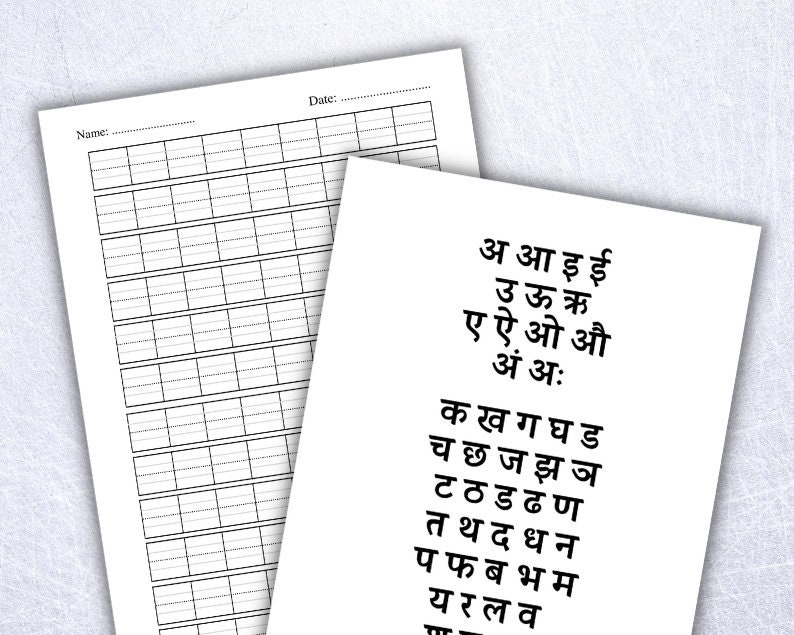 Name: ..........................
Date: ...........................
अ आ इ ई
उ ऊ ऋ
ए ऐ ओ औ
अं अः
क ख ग घ ड
च छ ज झ ञ
ट ठ ड ढ ण
त थ द ध न
प फ ब भ म
य र ल व